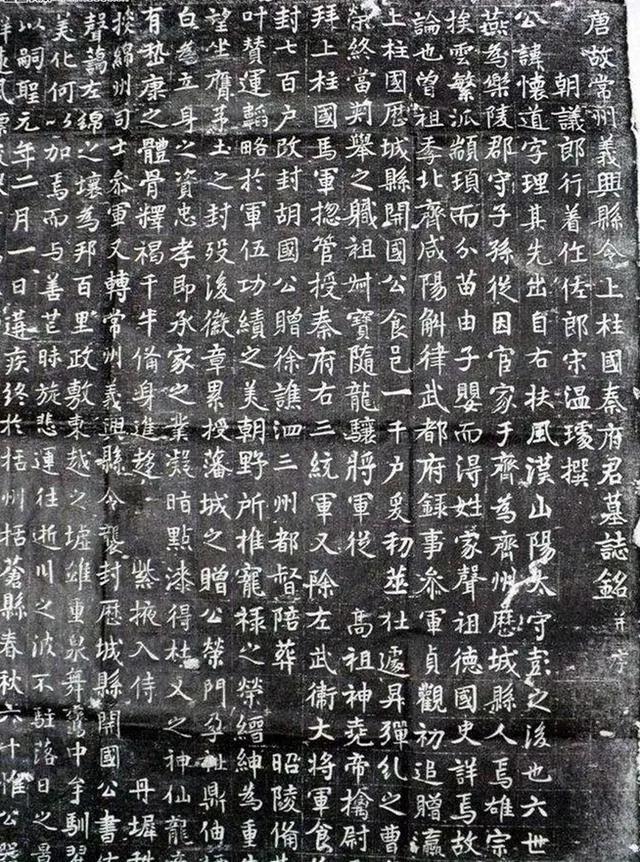 唐故常州義興縣令上柱國秦府君墓誌銘并序
朝議郎行著作佐郎宋溫璩撰
公諱懷道字理其先出自右扶風漢山陽太守彭之後也六世
燕為樂陵郡守子孫從因官家于齊為齊州歷城縣人焉雄宗
挨雲繁派顓頊而分苗由子嬰而得姓家聲祖德國史詳焉故
論也曾祖季北齊咸陽斛律武都府録事叅軍貞觀初追贈瀛
上柱國歷城縣開國公食邑一千户爰初莅壮遽昇彈糺之曹
榮終當刺舉之職祖㚙寶隨龍驤將軍從高祖神堯帝擒尉
拜上柱國馬軍揔管授秦府右三統軍又除左武衛大將軍食
封七百户改封胡國公贈徐譙泗三州都督陪葬昭陵備
叶賛運韜略於軍伍功績之美朝野所推寵禄之榮縉紳為重
望坐膺茅土之封殁後徽章累授藩城之贈公榮門孕祉鼎
白為立身之資忠孝即承家之業凝暗點漆得杜乂之神仙龍
有嵆康之體骨釋褐千牛備身進趍紫掖入侍丹墀
掞綿州司士叅軍又轉常州義興縣令襲封歷城縣開國公書
聲藹左錦之壤為邦百里政敷東越之墟雄重泉舞鸞中牟馴
美化何以加焉而与善芒昧旋悲運往逝川之波不駐落日之
以嗣聖元年二月一日遘疾終於括州括蒼縣春秋六十惟公